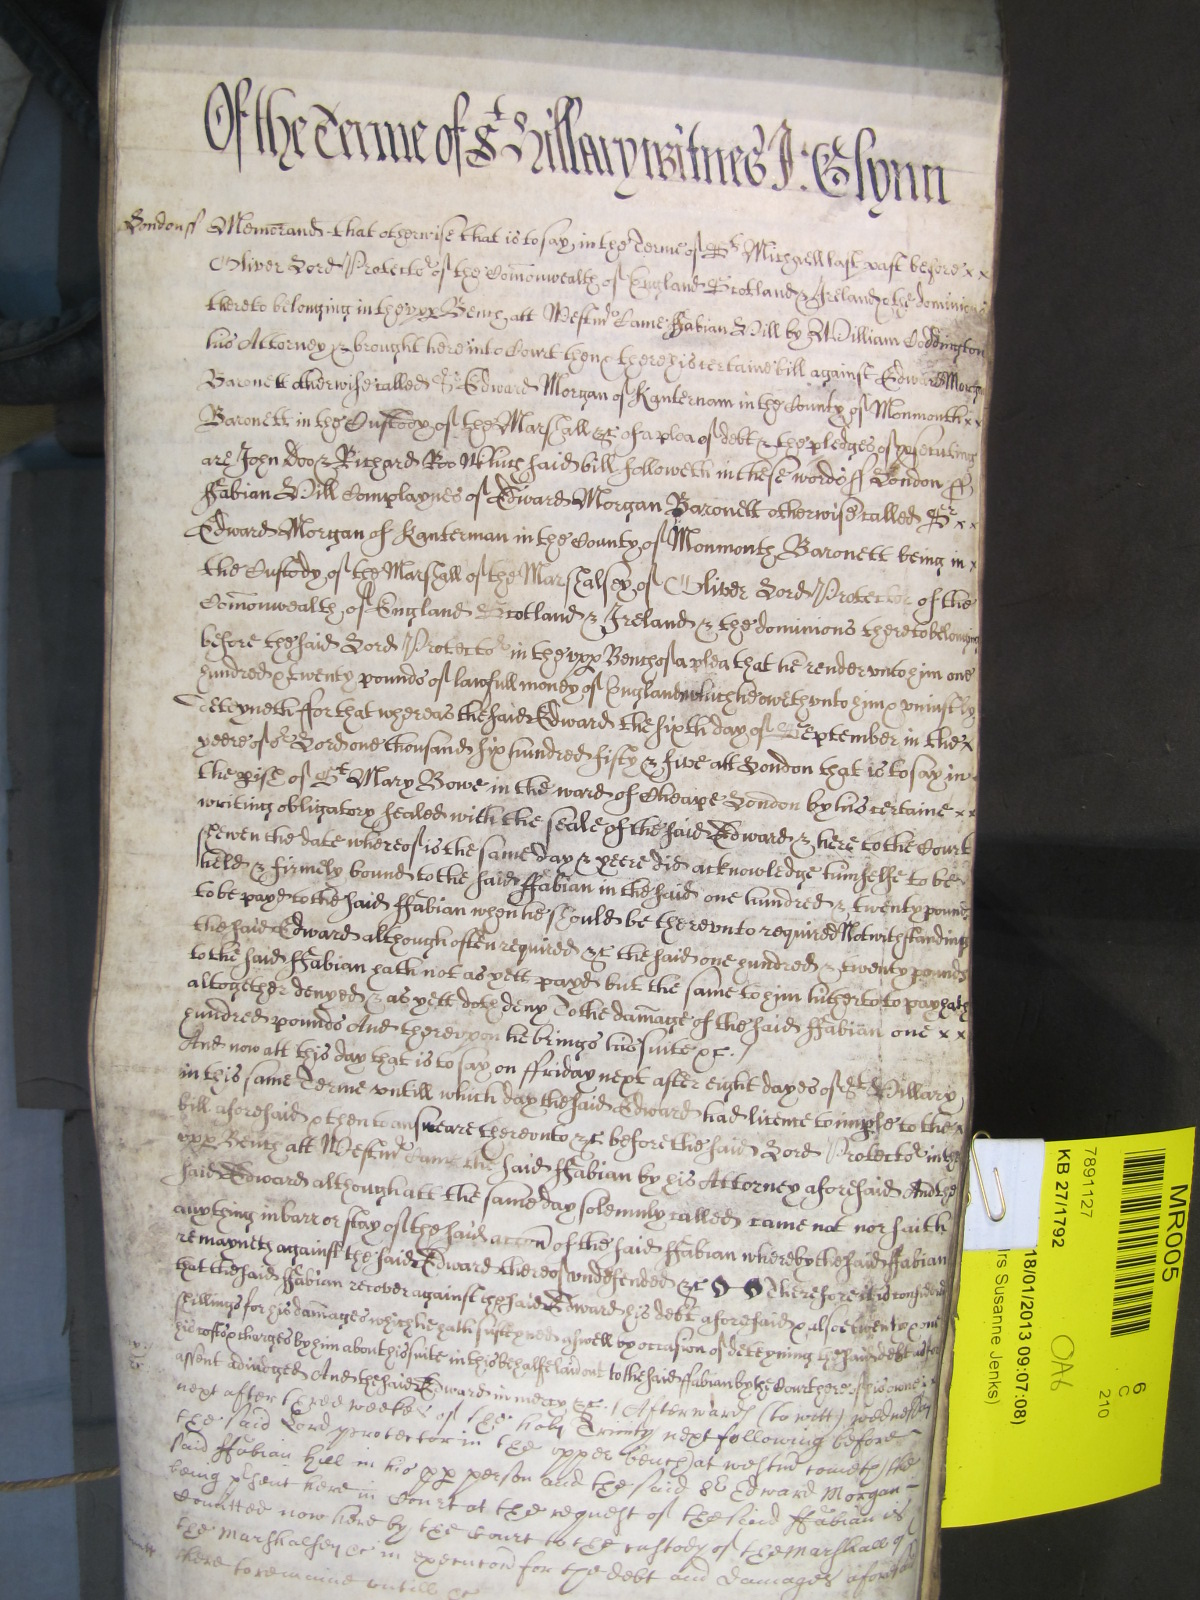 Of the Terme of St Hillary witnes J: Glynn
London ss Memorand that otherwise that is to say in the Terme of St Michaell last past before x x
Oliver Lord Protector of the Comonwealth of England Scotland & Ireland & the dominions
thereto belonging in the upp Bench att Westmr Came ffabian Hill by William Coddington
his Attorney & brought here into Court then & there his certaine bill against Edward Morgan
Baronett otherwise called Sr Edward Morgan of Lanternam in the County of Monmouth x x
Baronett in the Custody of the Marshall &c of a plea of debt & the pledges of prosecuting
are John Doo & Richard Roo Which said bill followeth in these words ss London ss
ffabian Hill Complaynes of Edward Morgan Baronett otherwise called Sr x x
Edward Morgan of Lanternam in the County of Monmouth Baronett being in x
the Custody of the Marshall of the Marshalsey of Oliver Lord Protector of the
Comonwealth of England Scotland & Ireland & the dominions thereto belonging
before the said Lord Protector in the upp Bench of a plea that he render unto him one
hundred & twenty pounds of lawfull money of England which he oweth unto him & uniustly
deteyneth ffor that whereas the said Edward the sixth day of September in the x
yeere of or Lord one thousand six hundred fifty & five att London that is to say in
the pish of St Mary Bowe in the ward of Cheape London by his certaine x x
writing obligatory sealed with the seale of the said Edward & here to the Court
shewen the date whereof is the same day & yeere did acknowledge himselfe to be
held & firmely bound to the said ffabian in the said one hundred & twenty pounds
to be payd to the said ffabian when he should be thereunto required Notwithstanding
the said Edward although often required &c the said one hundred & twenty pounds
to the said ffabian hath not as yett payd but the same to him hitherto to pay hath
altogether denyed & as yett doth deny To the damage of the said ffabian one x x
hundred pounds And thereupon he brings his suite &c.
And now att this day that is to say on ffriday next after eight dayes of St Hillary
in this same Terme untill which day the said Edward had licence to imple to the x
bill aforesaid & then to answeare thereunto &c before the said Lord Protector in the
upp Bench att Westmr Came the said ffabian by his Attorney aforesaid And the
said Edward although att the same day solemnly called came not nor saith
any thing in barr or stay of the said accon of the said ffabian whereby the said ffabian
remayneth against the said Edward thereof undefended &c Therefore it is considered
that the said ffabian recover against the said Edward his debt aforesaid & alsoe twenty one
shillings for his damages which he hath susteyned aswell by occasion of deteyning the said debt as for
his costs & charges by him about his suite in this behalfe laid out to the said ffabian by the Court here of his owne
assent adiudged And the said Edward in mercy &c. Afterwards (to witt) wednesday
next after three weekes of the holy Trinity next following before
the said Lord protector in the upper bench at westmr cometh the
said ffabian Hill in his pp person and the said Sr Edward Morgan
being psent here in Court at the request of the said ffabian is
comitted now here by the Court to the custody of the Marshall of
the Marshalsey &c in execucon for the debt and damages aforesaid
there to remaine untill &c
MR005
6
C
210
7891127
KB 27/1792
18/01/2013 09:07:08)
rs Susanne Jenks)
OA6